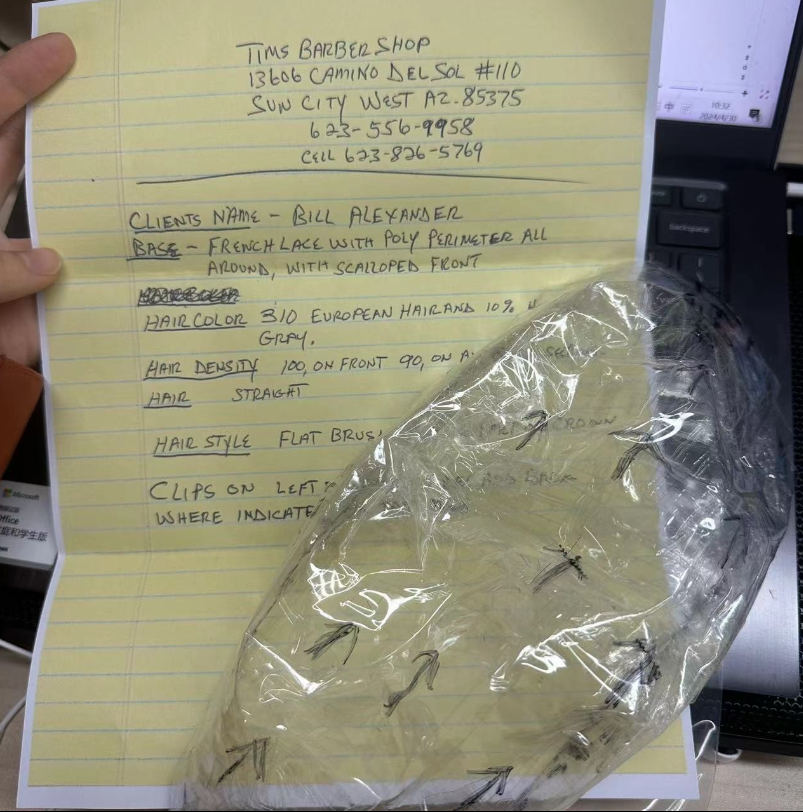 TIMS BARBER SHOP
13606 CAMINO DEL SOL #110
SUN CITY WEST AZ. 85375
623-556-9958
CELL 623-826-5769
CLIENTS NAME - BILL ALEXANDER
BASE - FRENCH LACE WITH POLY PERIMETER ALL
AROUND, WITH SCALLOPED FRONT
HAIR COLOR 310 EUROPEAN HAIR AND 10%
GRAY.
HAIR DENSITY 100, ON FRONT 90, ON
HAIR STRAIGHT
HAIR STYLE FLAT CROWN
CLIPS ON LEFT AND BACK
WHERE
backspace
10:32
2024/4/30
Microsoft
Office
庭和学生版